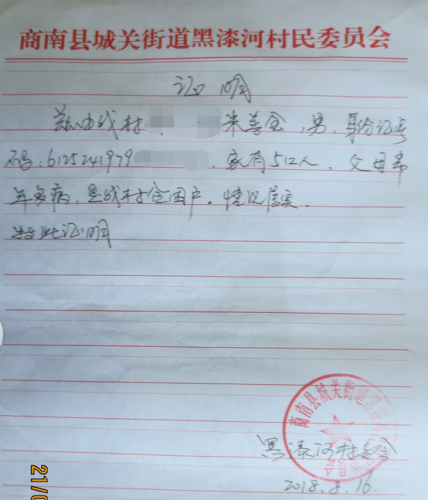 商南县城关街道黑漆河村民委员会
证明
兹由我村 朱善全,男,身份证号
码:6125241979 ,家有5口人,父母常
年多病,是我村贫困户,情况属实。
特此证明
商南县城关街道黑漆河村
黑漆河村委会
2018.8.16
21/0